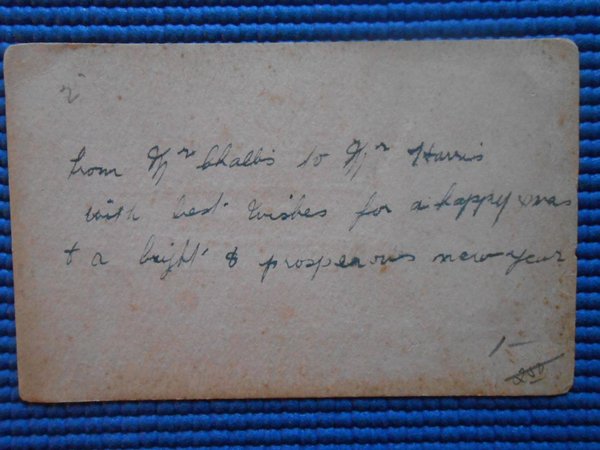 from Mr Challis to Mr Harris
with best wishes for a happy xmas
& a bright & prosperous new year
1-
250